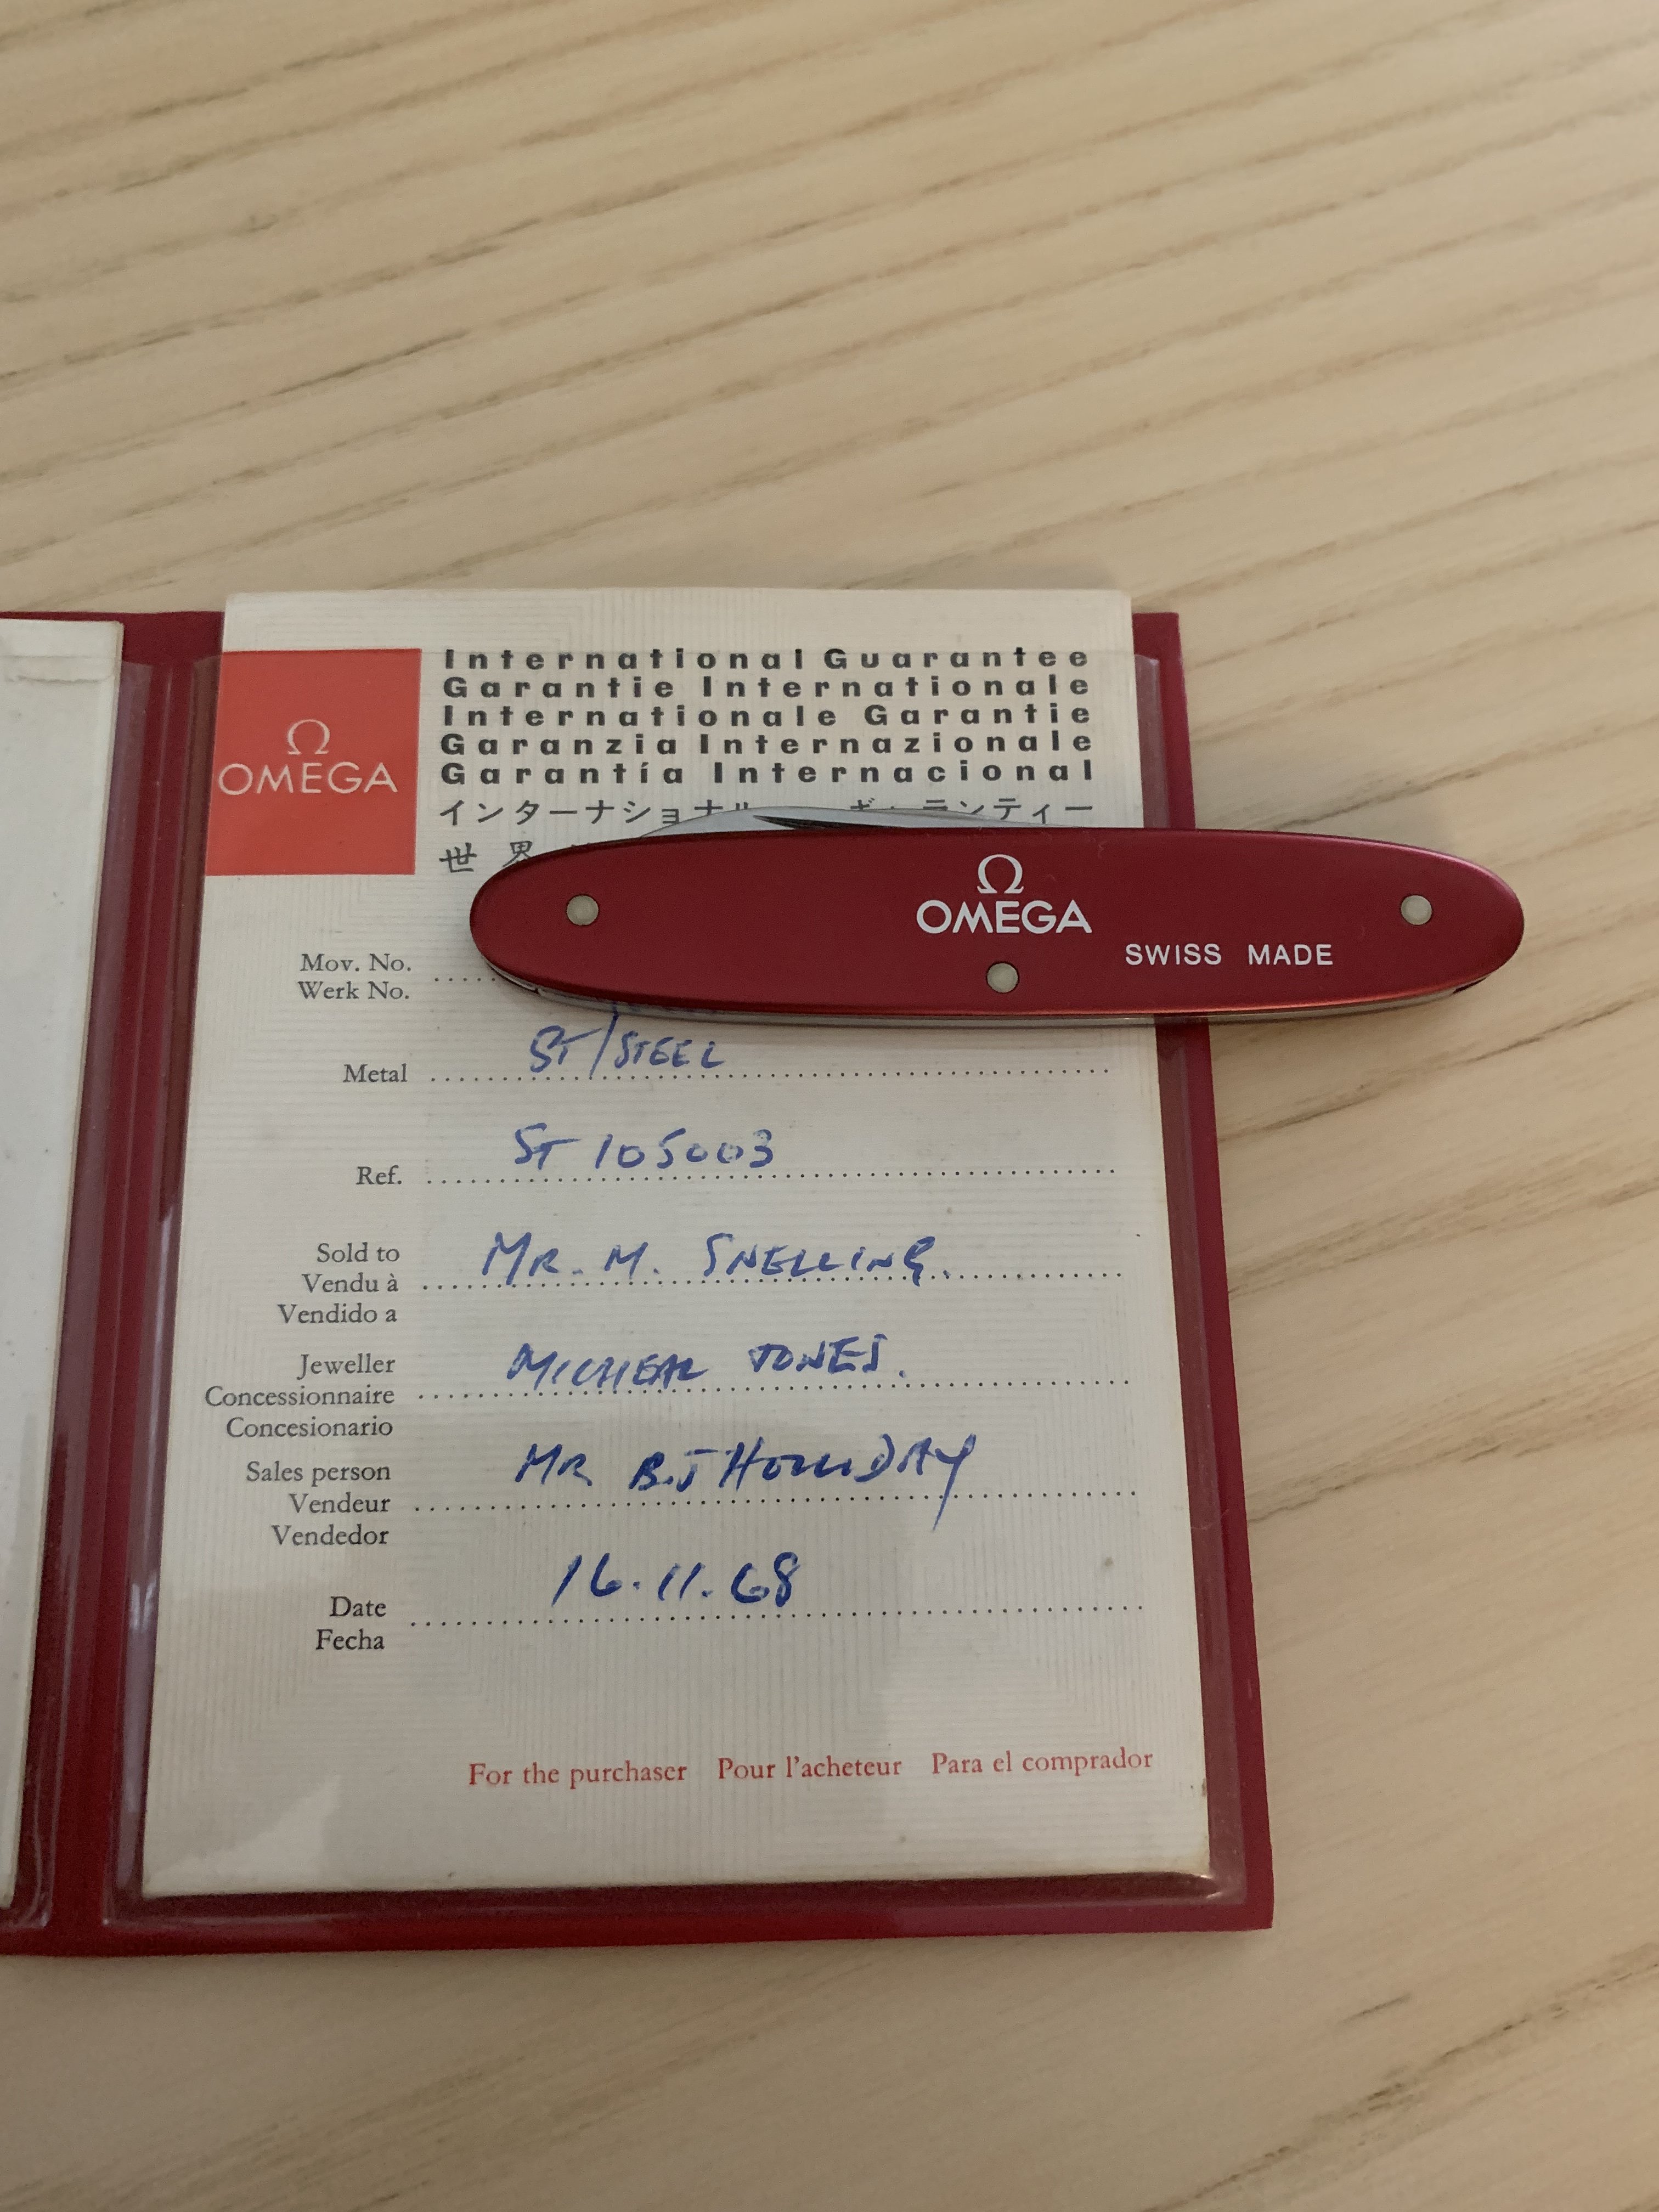 International Guarantee
Garantie Internationale
Internationale Garantie
Garanzia Internazionale
Garantía Internacional
インターナショナル ギャランティー
世界
Ω
OMEGA
Ω
OMEGA
SWISS MADE
Mov. No.
Werk No.
Metal ST/STEEL
Ref. ST 105003
Sold to
Vendu à MR. M. SNELLING.
Vendido a
Jeweller
Concessionnaire MICHEAL JONES.
Concesionario
Sales person
Vendeur MR B.J HOLLIDAY
Vendedor
Date 16.11.68
Fecha
For the purchaser Pour l'acheteur Para el comprador